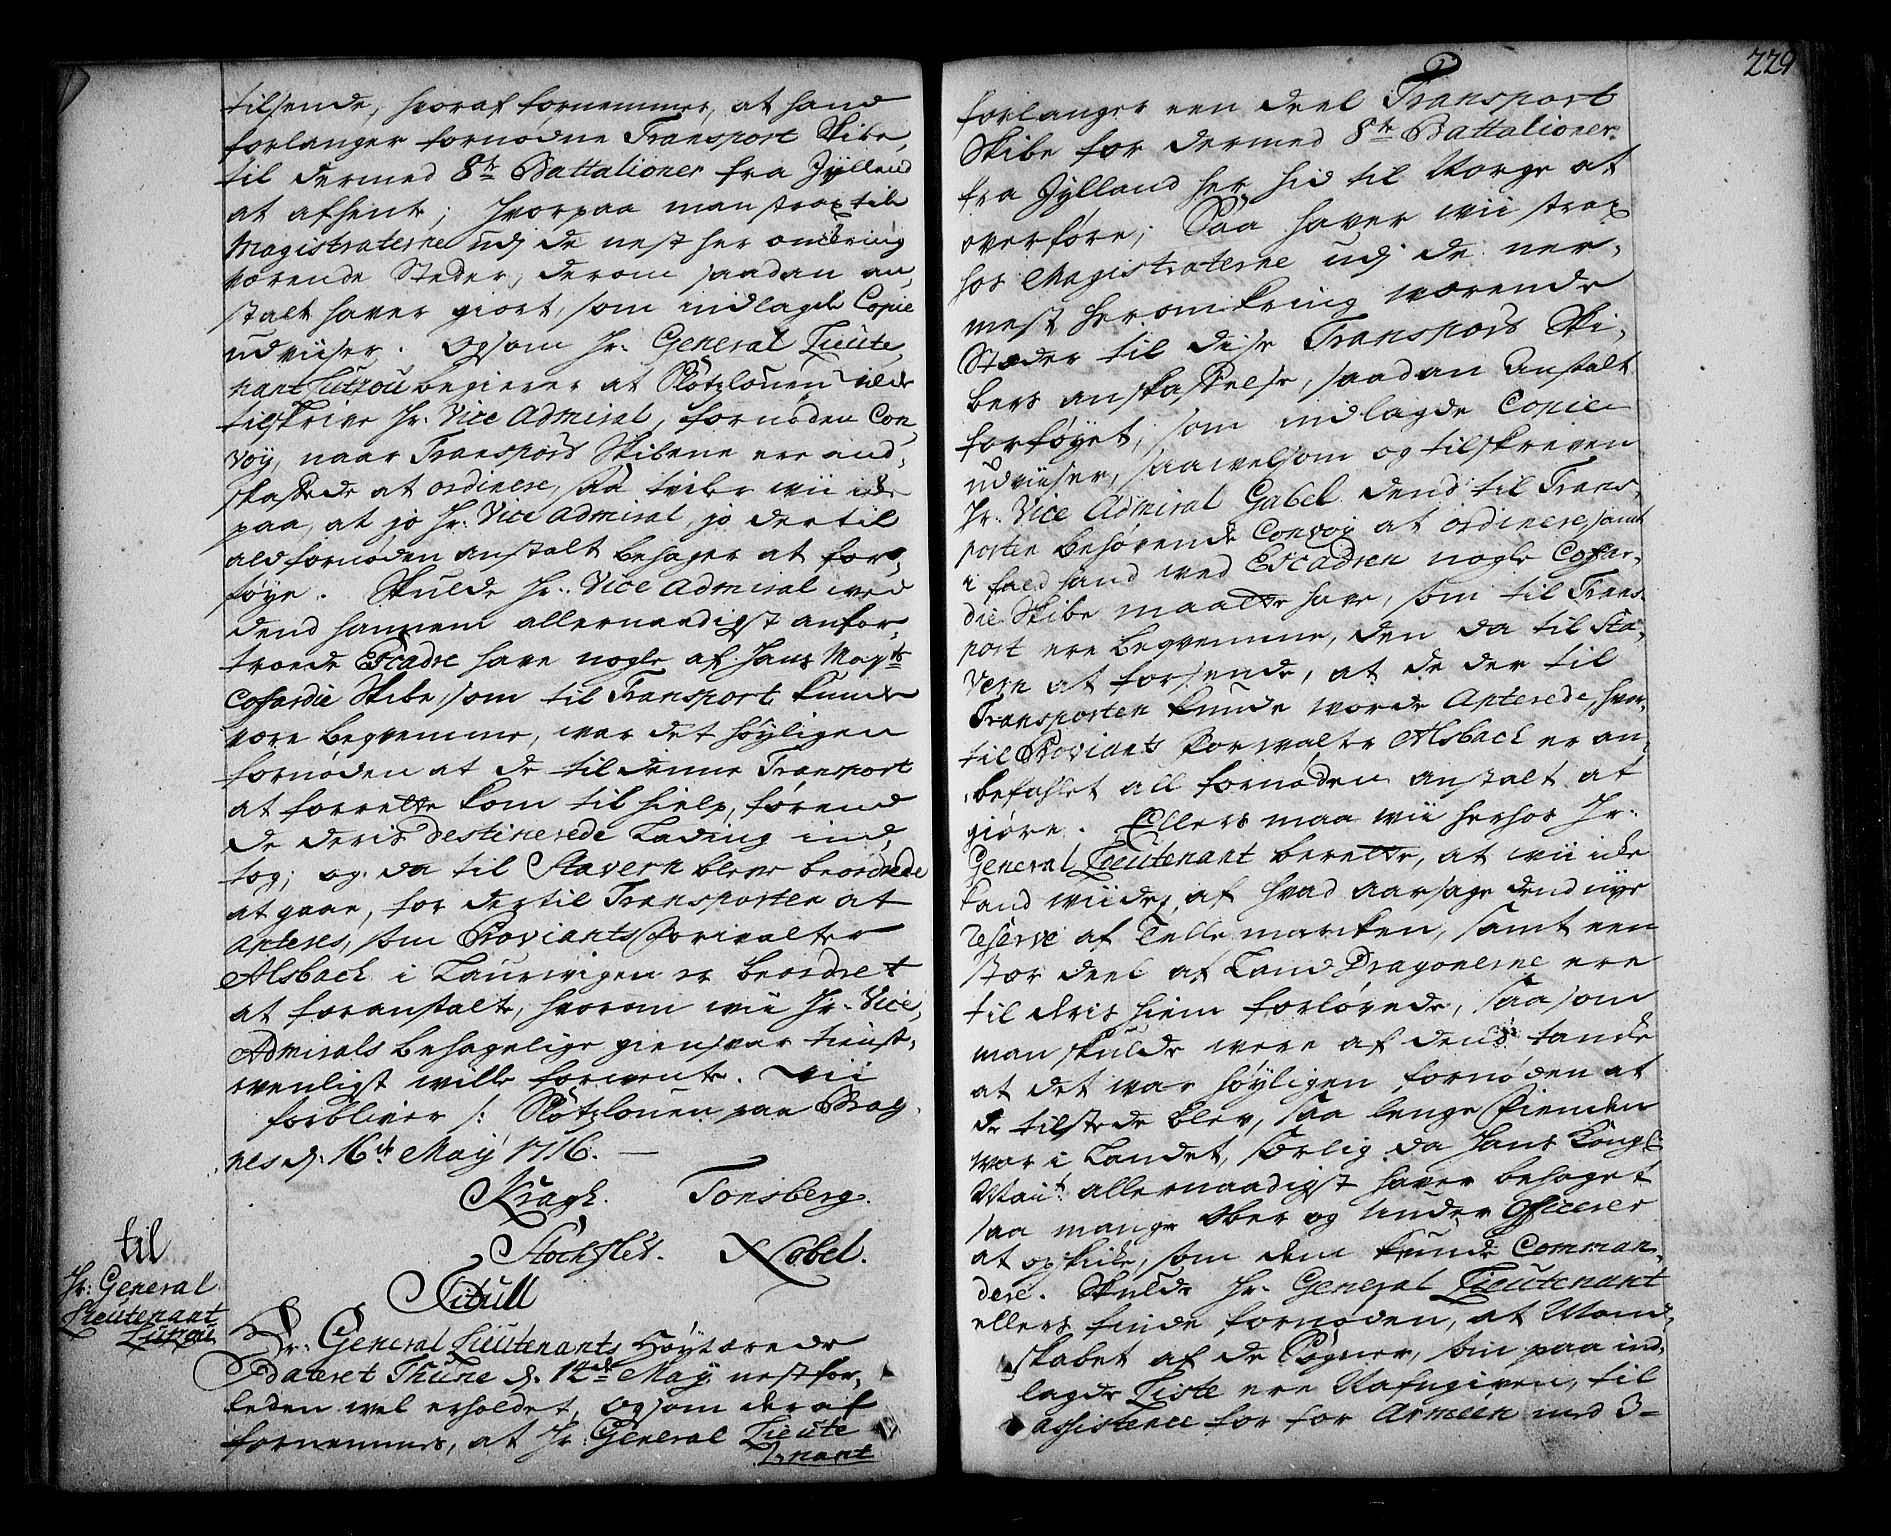 tilsende, hvoraf fornemmer, at hand
forlanger fornødne Transport Skibe,
til dermed 8te Battalioner fra Jylland
at afhente; hvorpaa man strax til
Magistraterne udj de nest her omkring
værende Steder, derom saadan an,
stalt haver giort, som indlagde Copie
udviiser. Ogsom Hr. General Lieute,
nant Lützou begierer at Slotzlouen vilde
tilskrive Hr. Vice Admiral, fornøden Con,
voy, naar Transports Skibene ere and,
skaffede at ordinere, saa tviler wii icke
paa, at jo Hr. Vice Admiral, jo dertil
ald fornøden anstalt behager at for,
føye. Skulde Hr. Vice Admiral ved
dend hannem allernaadigst anfor,
troede Escadre have nogle af Hans Mayts
Cofardie Skibe, som til Transport kunde
være beqvemme, war det høyligen
fornøden at de til denne Transport
at forrette kom til hielp, førend
de deris destinerede Lading ind,
tog; og da til Stavern bleve beordrede
at gaae, for der til Transporten at
apteres, som Proviants Forwalter
Alsbach i Laurwigen er beordret
at foranstalte, hvorom wii Hr. Vice,
Admirals behagelige giensvar tienst,
wenligst wille forwente. Wii
forbliver /: Slotzlouen paa Brag,
nes d. 16de May 1716. —
Kragh. Tonsberg.
Stochflet. Nobel.
til
Hr. General
Lieutenant
Lützou
Titull
Hr. General Lieutenants høytærede
dateret Thune d. 12de May nestfor,
leden wel erholdet, ogsom deraf
fornemmes, at Hr. General Lieute
nant
229
forlanger een deel Transport
Skibe for dermed 8te Battalioner
fra Jylland her hid til Norge at
overføre; Saa haver wii strax
hos Magistraterne udj de ner,
mest heromkring værende
Stæder til disse Transports Ski,
bers anskaffelse, saadan Anstalt
forføyet, som indlagde Copie
udviiser, saawelsom og tilskreven
Hr. Vice Admiral Gabel dend til Trans,
porten behøvende Convoy at ordinere, samt
i fald hand ved Escadren nogle Cofar,
die Skibe maatte have, som til Trans,
port ere beqvemme, den da til Sta,
vern at forsende, at de der til
Transporten kunde worde Apterede, hvor,
til Proviants Forwalter Alsbach er an,
befahlet all fornøden anstalt at
giøre. Ellers maa wii herhos Hr.
General Lieutenant berette, at wii icke
kand wiide, af hvad aarsage dend nye
reserve af Tellemarcken, samt een
stor deel af Land Dragonerne ere
til deris hiem forlovede, saasom
man skulde were af dend tancke
at det war høyligen fornøden at
de tilstede blev, saa lenge Fienden
war i Landet, særlig da Hans Kongl.
Mait. allernaadigst haver behaget
saa mange Ober og Under Officerer
at opskicke, som dem kunde Comman,
dere. Skulde Hr. General Lieutenant
ellers finde fornøden, at Mand,
skabet af de Sogner, som paa ind,
lagde Liste ere Nafngiven, til
assistence for for Armeen med 3-